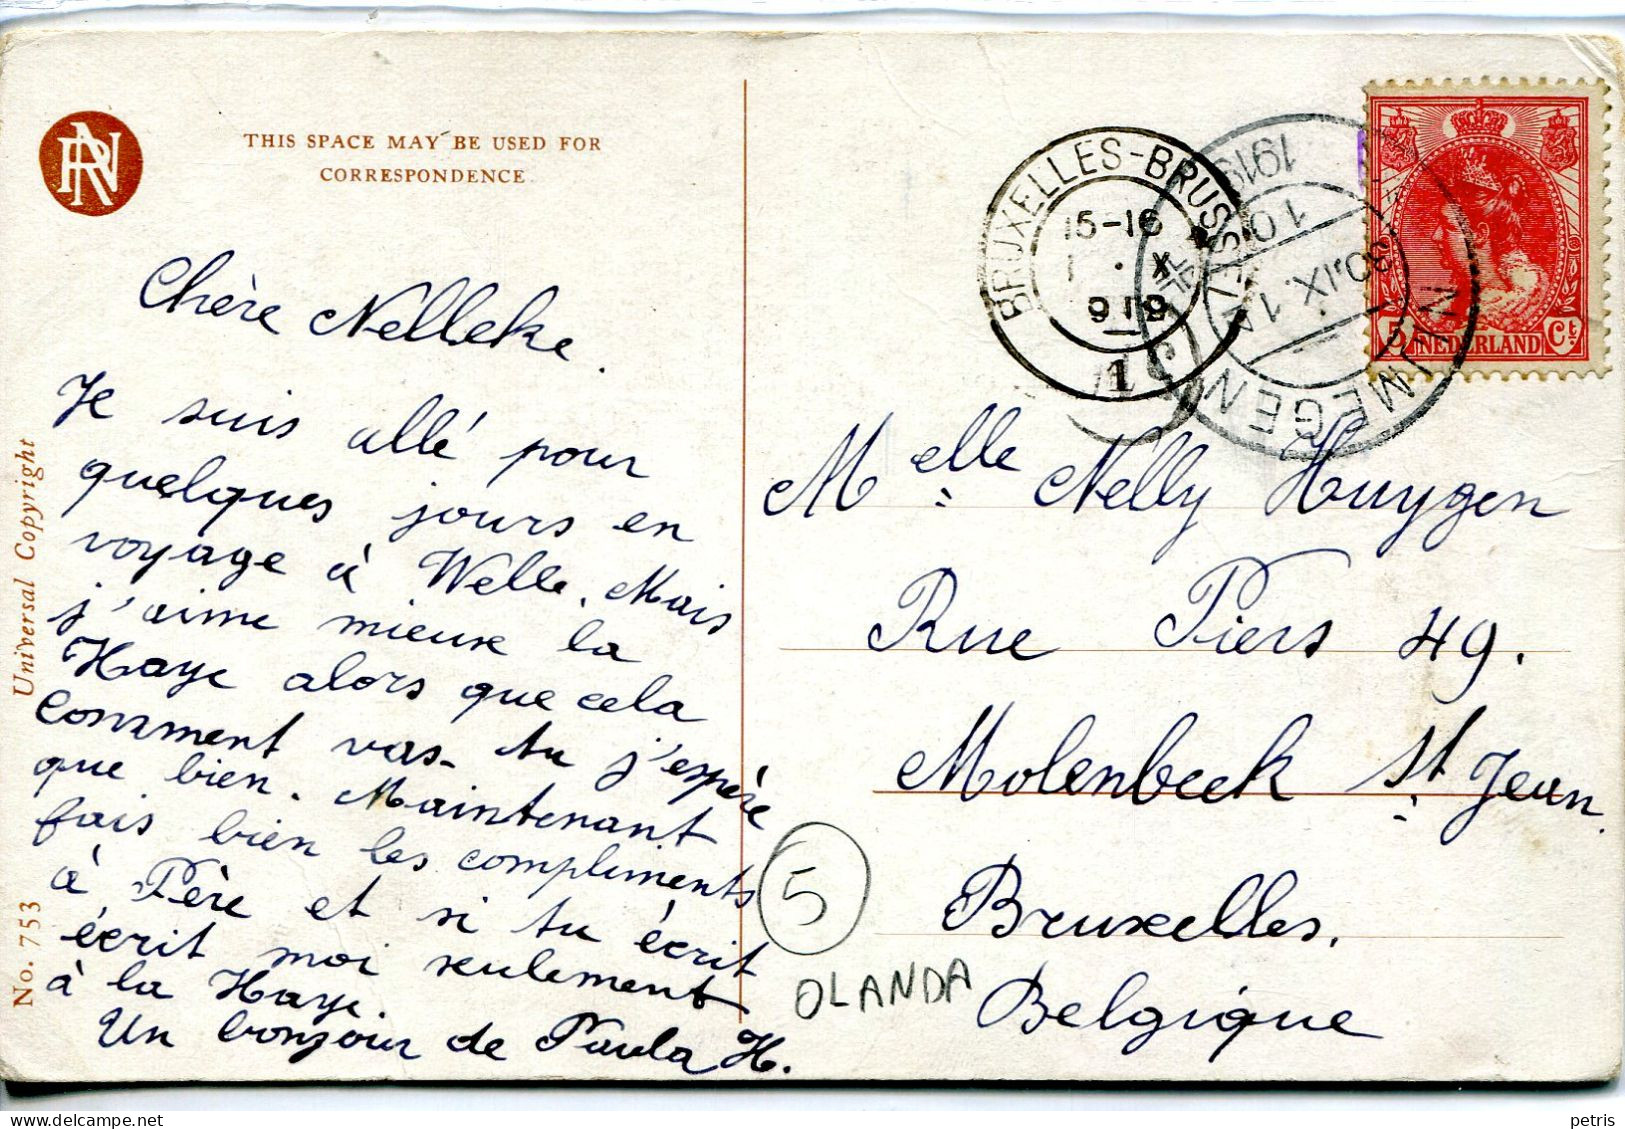 THIS SPACE MAY BE USED FOR
CORRESPONDENCE
RN
Universal Copyright
No. 753
Chère Nelleke.
Je suis allé pour
quelques jours en
voyage à Welle. Mais
j'aime mieux la
Haye alors que cela
Comment vas-tu j'espère
que bien. Maintenant
fais bien les compliments
à Père et si tu écrit
écrit moi seulement
à la Haye.
Un bonjour de Paula H.
BRUXELLES-BRUSSEL
15-16
1 X
1919
1
NIJMEGEN
30.IX.
10-1N
1919
5 NEDERLAND Ct
Melle Nelly Huygen
Rue Piers 49.
Molenbeek St Jean.
Bruxelles.
Belgique
5
OLANDA
petris